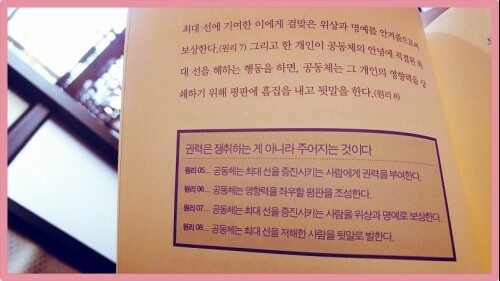 최대 선에 기여한 이에게 걸맞은 위상과 명예를 안겨줌으로써
보상한다.(원리 7) 그리고 한 개인이 공동체의 안녕에 직결된 최
대 선을 해하는 행동을 하면, 공동체는 그 개인의 영향력을 상
쇄하기 위해 평판에 흠집을 내고 뒷말을 한다.(원리 8)
권력은 쟁취하는 게 아니라 주어지는 것이다
원리 05... 공동체는 최대 선을 증진시키는 사람에게 권력을 부여한다.
원리 06... 공동체는 영향력을 좌우할 평판을 조성한다.
원리 07... 공동체는 최대 선을 증진시키는 사람을 위상과 명예로 보상한다.
원리 08... 공동체는 최대 선을 저해한 사람을 뒷말로 벌한다.